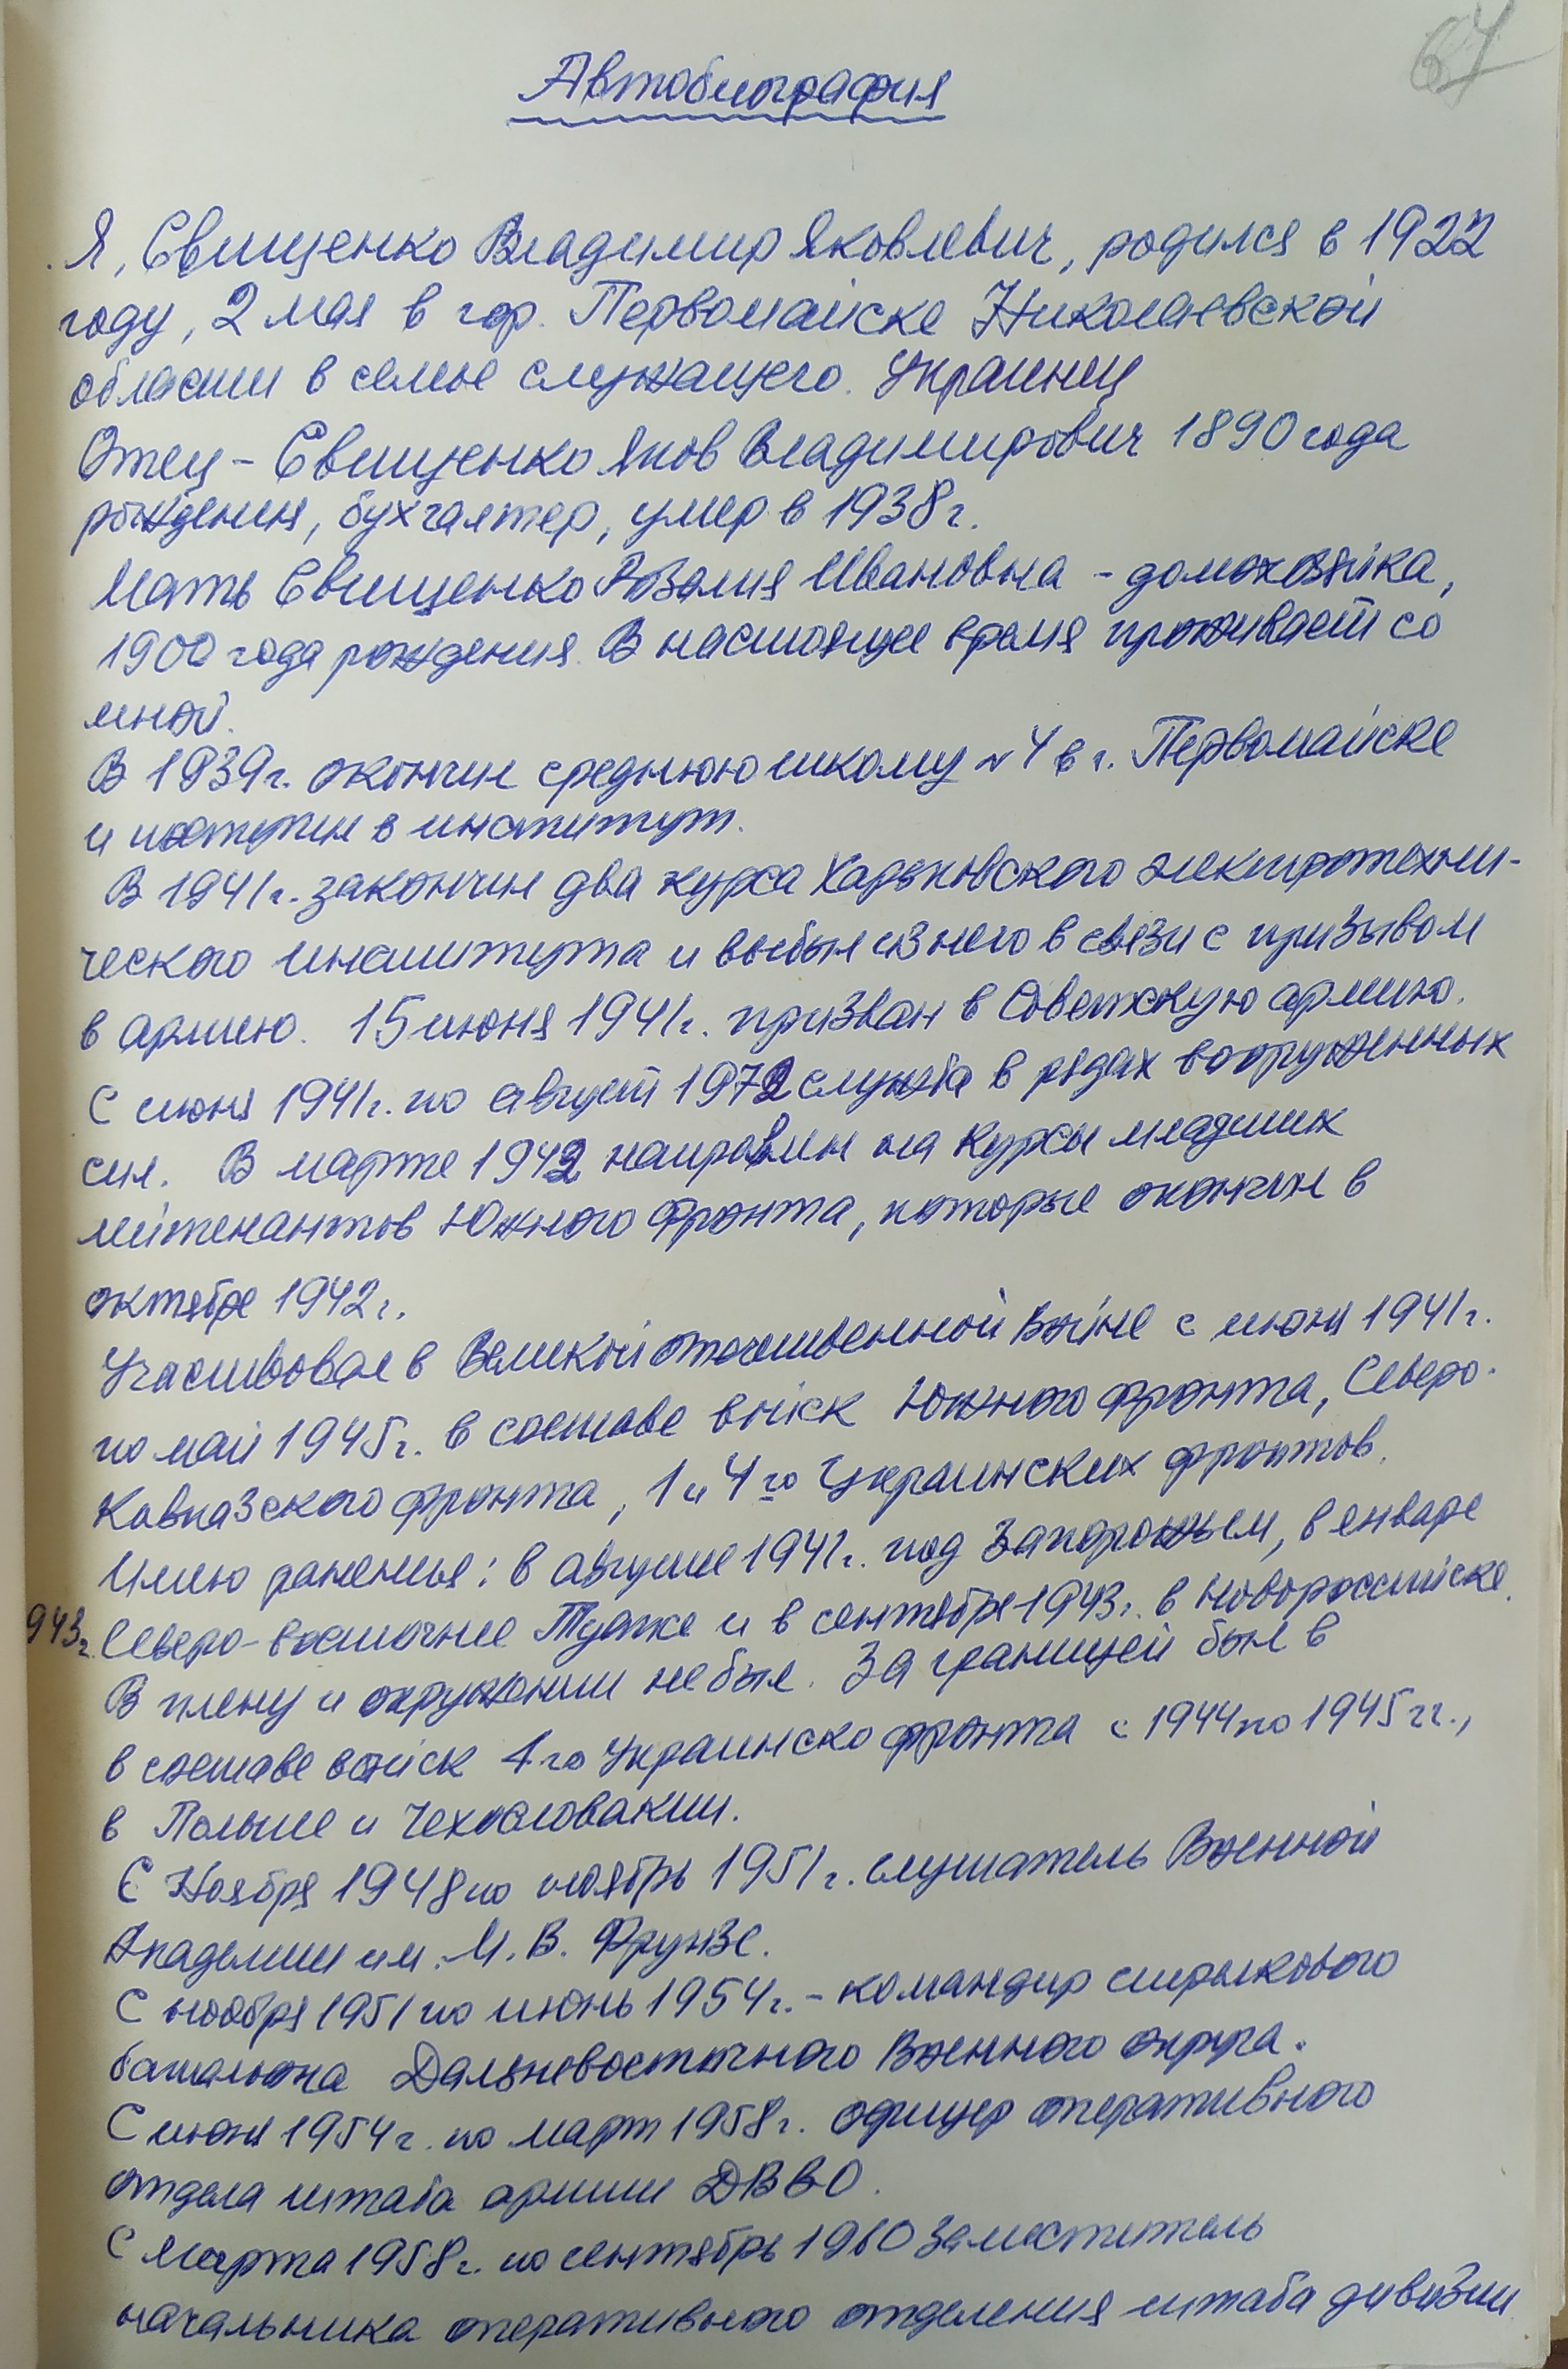 67
Автобиография
Я, Евищенко Владимир Яковлевич, родился в 1922
году, 2 мая в гор. Первомайске Николаевской
области в семье служащего. Украинец
Отец - Евищенко Яков Владимирович 1890 года
рождения, бухгалтер, умер в 1938г.
Мать Евищенко Розалия Ивановна - домохозяйка,
1900 года рождения. В настоящее время проживает со
мной.
В 1939г. окончил среднюю школу № 4 в г. Первомайске
и поступил в институт.
В 1941г. закончил два курса Харьковского электротехни-
ческого института и выбыл из него в связи с призывом
в армию. 15 июня 1941г. призван в Советскую армию.
С июня 1941г. по август 1972 служба в рядах вооруженных
сил. В марте 1942 направлен на курсы младших
лейтенантов Южного фронта, которые окончил в
октябре 1942г.
Участвовал в Великой отечественной войне с июня 1941г.
по май 1945г. в составе войск Южного фронта, Северо-
Кавказского фронта, 1 и 4го Украинских фронтов.
Имею раненья: в августе 1941г. под Запорожьем, в январе
943г. Северо-восточнее Туапсе и в сентябре 1943г. в Новороссийске.
В плену и окружении не был. За границей был в
в составе войск 4го Украинско фронта с 1944 по 1945гг.,
в Польше и Чехословакии.
С Ноября 1948 по ноябрь 1951г. слушатель Военной
Академии им. М.В. Фрунзе.
С ноября 1951 по июнь 1954г. - командир стрелкового
батальона Дальневосточного Военного округа.
С июня 1954г. по март 1958г. офицер оперативного
отдела штаба армии ДВВО.
С Марта 1958г. по сентябрь 1960 Заместитель
начальника оперативного отделения штаба дивизии